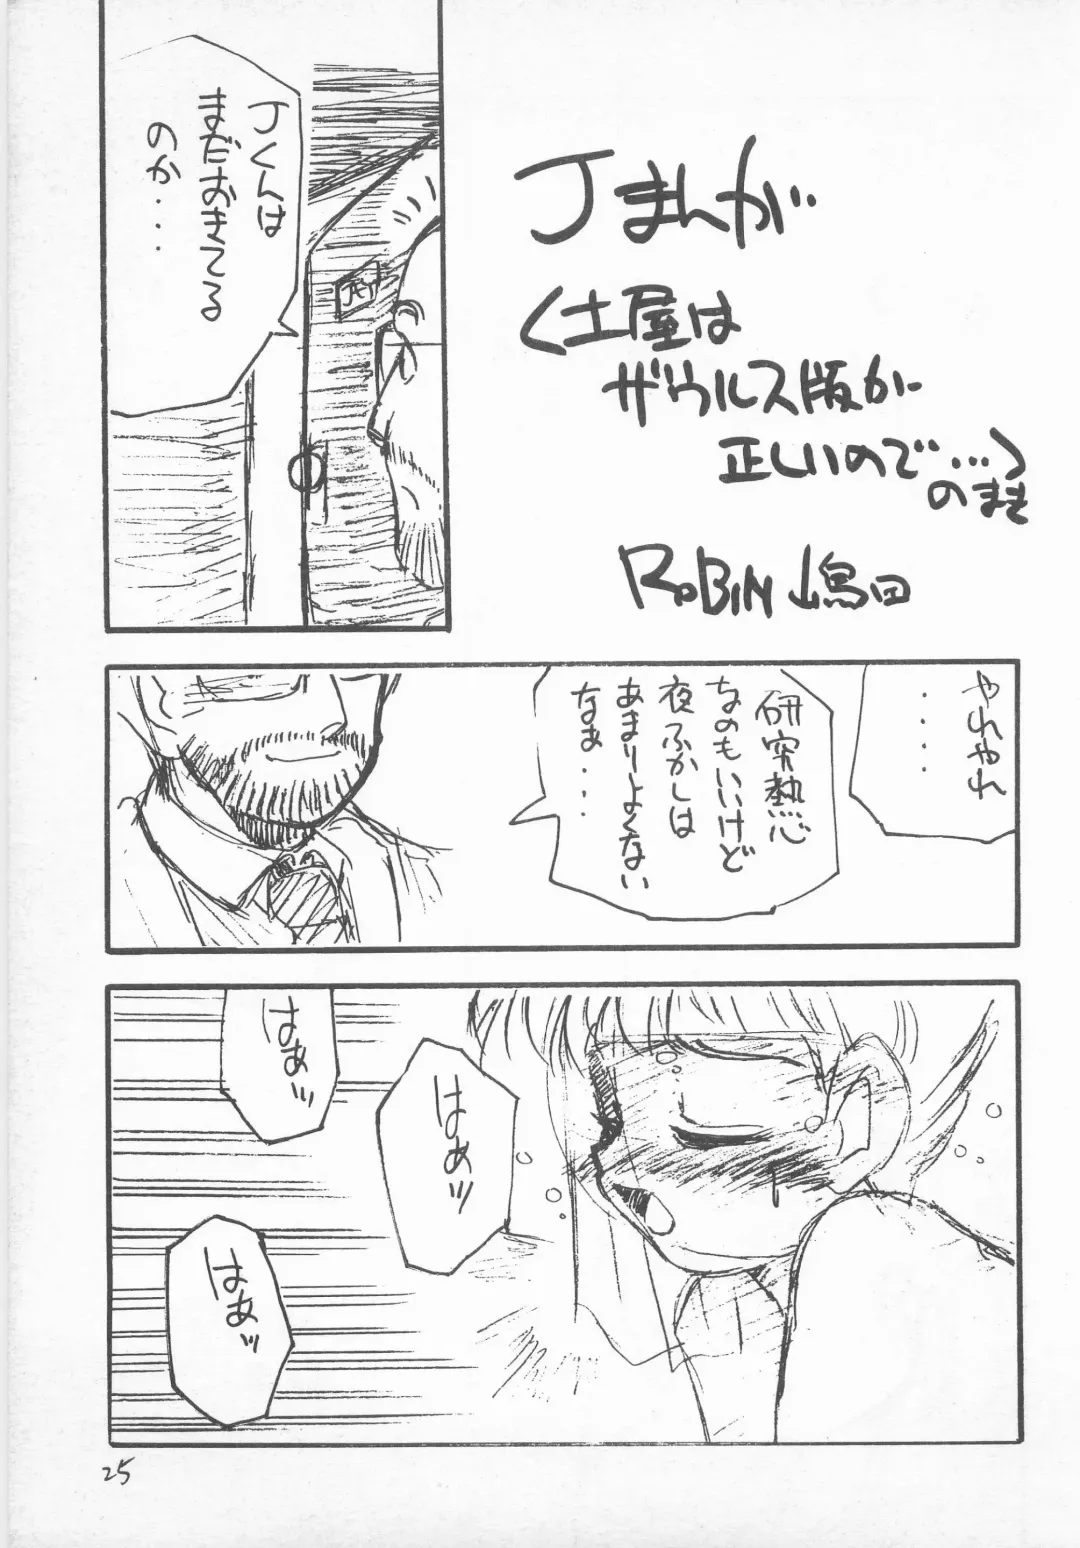 Jまんが
(土屋は
ザウルス版が
正しいので…)
のまき
RoBiN 嶋田
Jくんは
まだおきてる
のか・・・
やれやれ
・・・・
研究熱心
なのもいいけど
夜ふかしは
あまりよくない
なぁ・・・
はぁッ
はぁッ
はぁッ
25